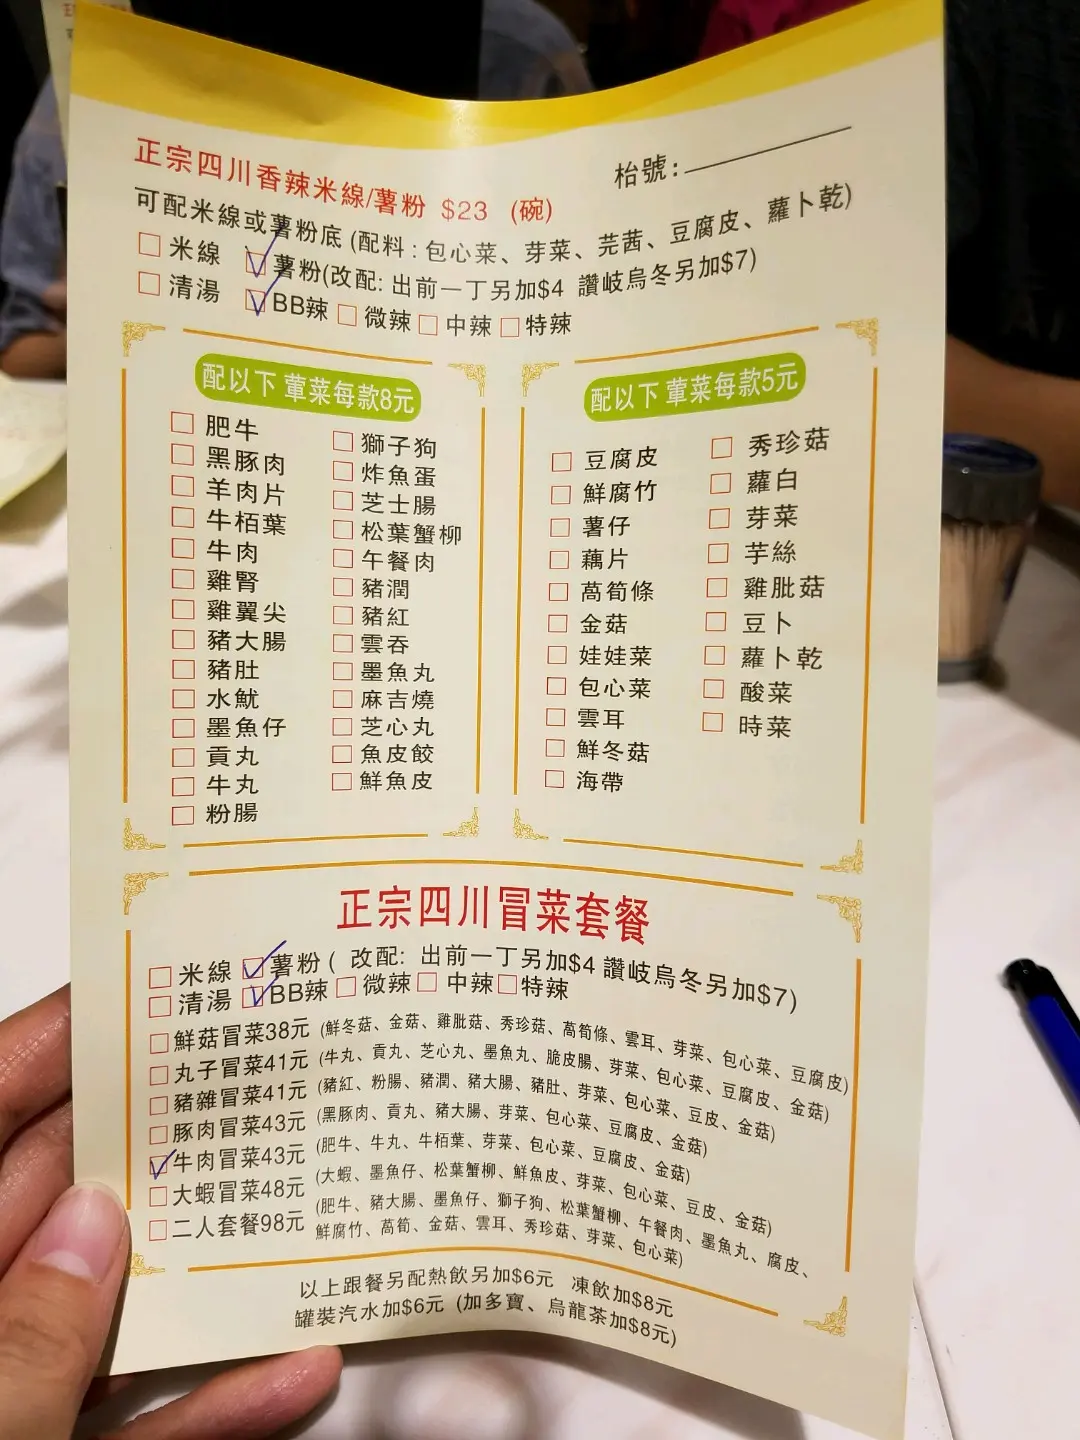 正宗四川香辣米線/薯粉 $23 (碗)
枱號:
可配米線或薯粉底 (配料 : 包心菜、芽菜、芫茜、豆腐皮、蘿卜乾)
米線 薯粉(改配: 出前一丁另加$4 讚岐烏冬另加$7)
清湯 BB辣 微辣 中辣 特辣
配以下 葷菜每款8元
肥牛
黑豚肉
羊肉片
牛栢葉
牛肉
雞腎
雞翼尖
豬大腸
豬肚
水魷
墨魚仔
貢丸
牛丸
粉腸
獅子狗
炸魚蛋
芝士腸
松葉蟹柳
午餐肉
豬潤
豬紅
雲吞
墨魚丸
麻吉燒
芝心丸
魚皮餃
鮮魚皮
配以下 葷菜每款5元
豆腐皮
鮮腐竹
薯仔
藕片
萵筍條
金菇
娃娃菜
包心菜
雲耳
鮮冬菇
海帶
秀珍菇
蘿白
芽菜
芋絲
雞肶菇
豆卜
蘿卜乾
酸菜
時菜
正宗四川冒菜套餐
米線 薯粉 ( 改配: 出前一丁另加$4 讚岐烏冬另加$7)
清湯 BB辣 微辣 中辣 特辣
鮮菇冒菜38元 (鮮冬菇、金菇、雞肶菇、秀珍菇、萵筍條、雲耳、芽菜、包心菜、豆腐皮)
丸子冒菜41元 (牛丸、貢丸、芝心丸、墨魚丸、脆皮腸、芽菜、包心菜、豆腐皮、金菇)
豬雜冒菜41元 (豬紅、粉腸、豬潤、豬大腸、豬肚、芽菜、包心菜、豆皮、金菇)
豚肉冒菜43元 (黑豚肉、貢丸、豬大腸、芽菜、包心菜、豆腐皮、金菇)
牛肉冒菜43元 (肥牛、牛丸、牛栢葉、芽菜、包心菜、豆腐皮、金菇)
大蝦冒菜48元 (大蝦、墨魚仔、松葉蟹柳、鮮魚皮、芽菜、包心菜、豆皮、金菇)
二人套餐98元 (肥牛、豬大腸、墨魚仔、獅子狗、松葉蟹柳、午餐肉、墨魚丸、腐皮、
鮮腐竹、萵筍、金菇、雲耳、秀珍菇、芽菜、包心菜)
以上跟餐另配熱飲另加$6元 凍飲加$8元
罐裝汽水加$6元 (加多寶、烏龍茶加$8元)